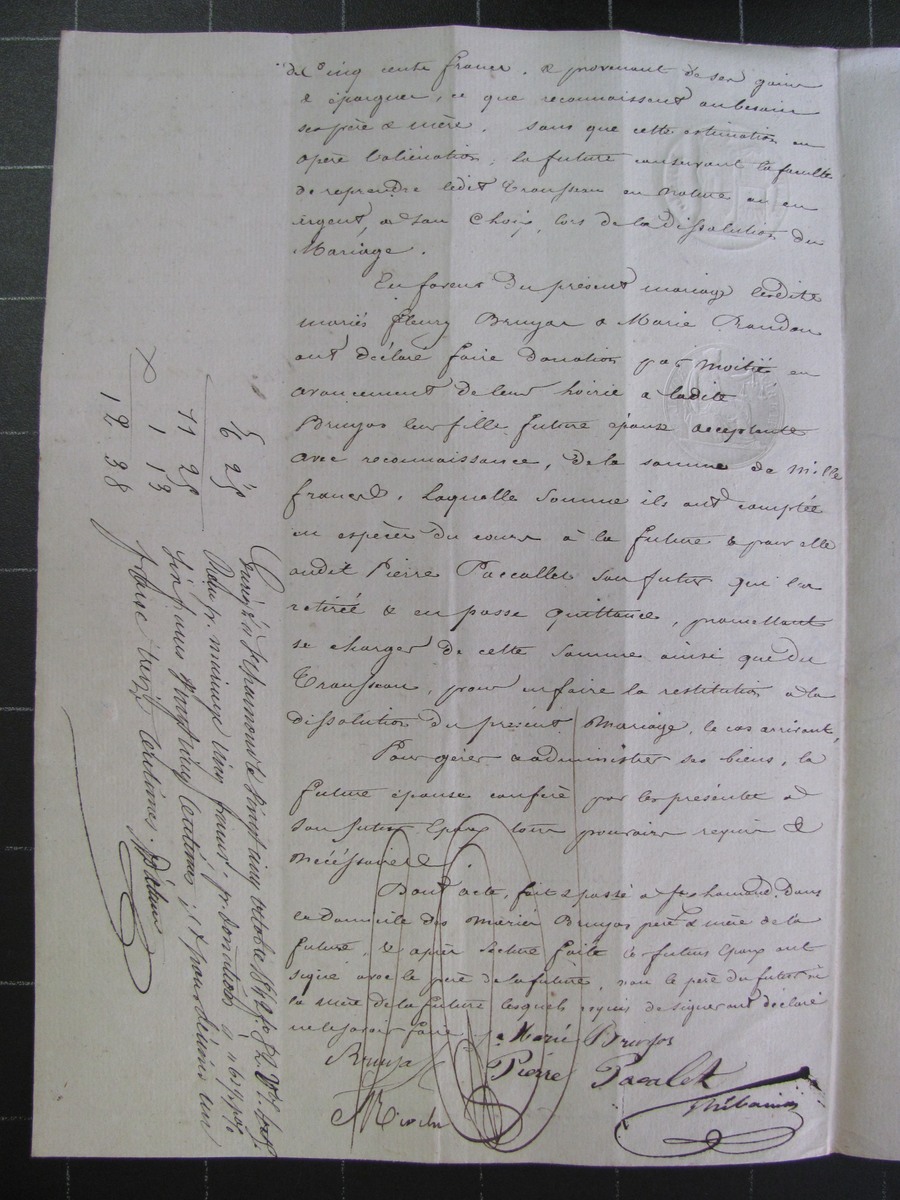 de Cinq cents francs. & provenant de ses gains
& épargnes, ce que reconnaissent au besoin
ses père & mère. sans que cette estimation en
opère l'aliénation, la future conservant la faculté
de reprendre ledit Trousseau en nature ou en
argent, a son Choix, lors de la Dissolution du
Mariage.
En faveur Du présent mariage lesdits
mariés fleury Bruyas & Marie Randon
ont déclaré faire Donation par moitié en
avancement de leur hoirie a ladite
Bruyas leur fille future épouse acceptante
avec reconnaissance, de la somme de Mille
francs, Laquelle Somme ils ont comptée
en espèces du cours à la future & pour elle
audit Pierre Pascallet son futur qui l'a
retirée & en passe Quittance, promettant
se charger de cette Somme ainsi que du
Trousseau, pour en faire la restitution a la
dissolution du présent Mariage, le cas arrivant,
Pour gérer & administrer ses biens, la
future épouse confère par les présentes a
son futur Epoux tous pouvoirs requis &
nécéssaires.
Dont acte, fait & passé a St chamond. Dans
le Domicile des Mariés Bruyas père & mère de la
future, & après Lecture faite les futurs Epoux ont
signé avec le père de la future, non le père du futur ni
la mère de la future lesquels requis de signer ont déclaré
ne le savoir faire
Marie Bruyas
Bruyas
Pierre Pacalet
Thibaud
6 25
11 25
1 13
12 38
Enregistré à St chamond le vingt cinq octobre
Reçu pr. mariage cinq francs, pr donation
six francs vingt cinq centimes, & pour décime un
franc treize centimes